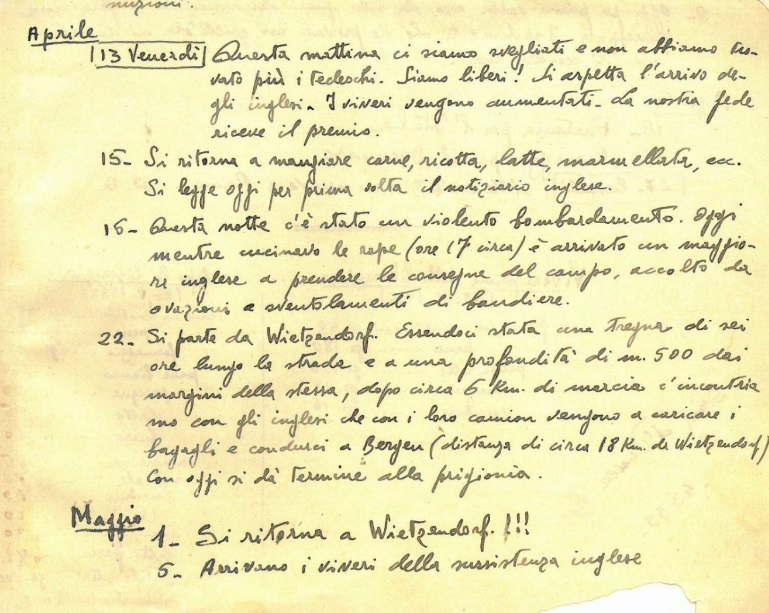 nuzioni.
Aprile
13 Venerdì Questa mattina ci siamo svegliati e non abbiamo tro-
vato più i tedeschi. Siamo liberi! Si aspetta l'arrivo de-
gli inglesi. I viveri vengono aumentati. La nostra fede
riceve il premio.
15- Si ritorna a mangiare carne, ricotta, latte, marmellata, ecc.
Si legge oggi per prima volta il notiziario inglese.
16- Questa notte c'è stato un violento bombardamento. Oggi
mentre cucinavo le rape (ore 17 circa) è arrivato un maggio-
re inglese a prendere le consegne del campo, accolto da
ovazioni e sventolamenti di bandiere.
22- Si parte da Wietzendorf. Essendoci stata una tregua di sei
ore lungo la strada e a una profondità di m. 500 dai
margini della stessa, dopo circa 6 Km. di marcia c'incontria
mo con gli inglesi che con i loro camion vengono a caricare i
bagagli e condurci a Bergen (distanza di circa 18 Km. da Wietzendorf)
Con oggi si dà termine alla prigionia.
Maggio
1- Si ritorna a Wietzendorf. !!!
5- Arrivano i viveri della sussistenza inglese